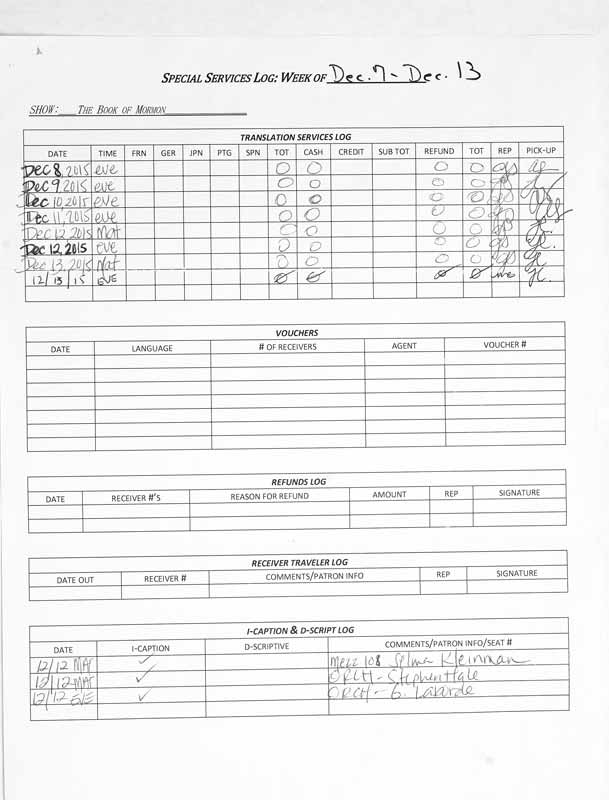 SPECIAL SERVICES LOG: WEEK OF Dec. 7 - Dec. 13
SHOW: THE BOOK OF MORMON
TRANSLATION SERVICES LOG
DATE TIME FRN GER JPN PTG SPN TOT CASH CREDIT SUB TOT REFUND TOT REP PICK-UP
Dec 8, 2015 eve 0 0 0 0 gs
Dec 9, 2015 eve 0 0 0 0 gs
Dec 10, 2015 eve 0 0 0 0 gs
Dec 11, 2015 eve 0 0 0 0 gs
Dec 12, 2015 Mat 0 0 0 0 gs
Dec 12, 2015 eve 0 0 0 0 gs
Dec 13, 2015 Mat 0 0 0 0 gs
12/13/15 EVE 0 0 0 0
VOUCHERS
DATE LANGUAGE # OF RECEIVERS AGENT VOUCHER #
REFUNDS LOG
DATE RECEIVER #'S REASON FOR REFUND AMOUNT REP SIGNATURE
RECEIVER TRAVELER LOG
DATE OUT RECEIVER # COMMENTS/PATRON INFO REP SIGNATURE
I-CAPTION & D-SCRIPT LOG
DATE I-CAPTION D-SCRIPTIVE COMMENTS/PATRON INFO/SEAT #
12/12 MAT ✓ Mezz 108 Selma Kleinman
12/12 MAT ✓ ORCH - Stephen Hale
12/12 EVE ✓ ORCH - G. Labarde